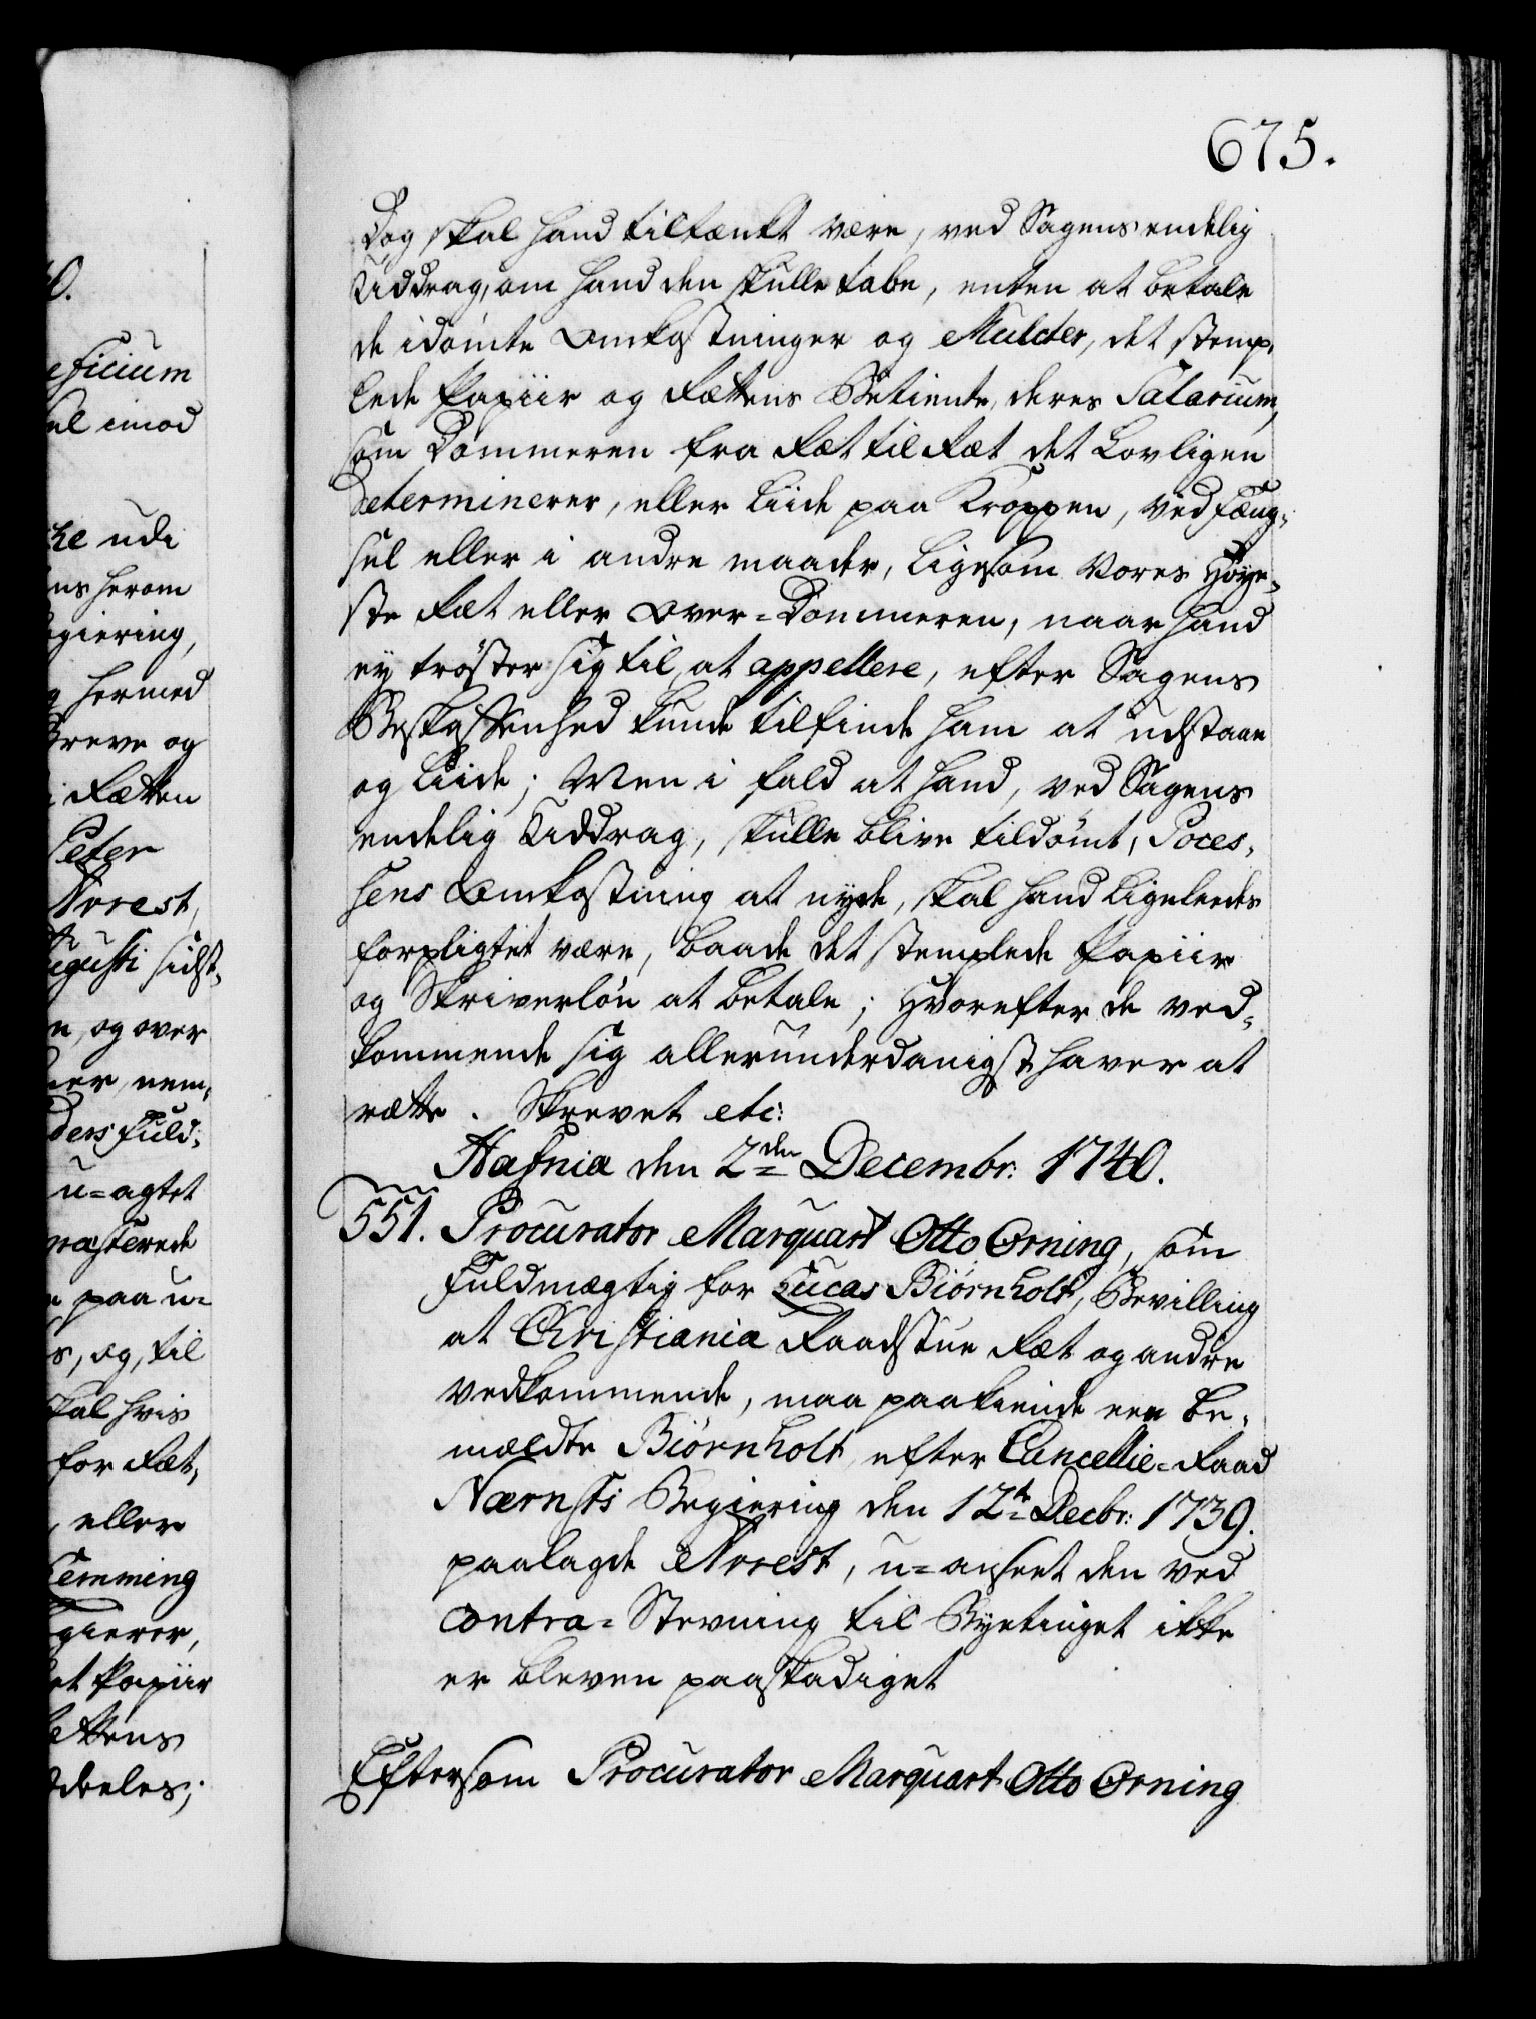 675.
Dog skal hand tiltænkt være, ved Sagens endelig
Uddrag, om hand den skulle tabe, enten at betale
de idømte Omkostninger og Mulcter, det stemp,
lede Papiir og Rættens Betiente, deres Salarium,
som Dommeren fra Ræt til Ræt det Lovligen
determinerer, eller liide paa Kroppen, ved Fæng,
sel eller i andre maader, ligesom Vores Høye,
ste Ræt eller Over-Dommeren, naar hand
ey trøster sig til at appellere, efter Sagens
Beskaffenhed kunde tilfinde ham at udstaae
og liide; Men i fald at hand, ved Sagens
endelig Uddrag, skulle blive tildømt, Poces,
sens Omkostning at nyde, skal hand ligeleedes
forpligtet være, baade det stemplede Papiir
og Skriverløn at betale; Hvorefter de ved,
kommende sig allerunderdanigst haver at
rætte. Skrevet etc:
Hafnia den 2den Decembr: 1740.
551. Procurator Marquart Otto Orning, som
Fuldmægtig for Lucas Biørnholt, Bevilling
at Christiania Raadstue Ræt og andre
vedkommende, maa paakiende een be,
mældte Biørnholt efter Cancellie-Raad
Nærnsts Begiering den 12te Decbr: 1739.
paalagde Arrest, u-anseet den ved
Contra-Stevning til Byetinget ikke
er bleven paaskadiget
Eftersom Procurator Marquart Otto Orning
0.
eficium
el imod
he udi
ns herom
egiering,
g hermed
Breve og
i Rætten
Peter
Arrest,
ugusti sidst,
n, og over
ner, nem,
ders Fuld,
u-agtet
masterede
n paa u-
s, og, til
kal hvis
for Ræt,
, eller
lemming
gierer,
et Papiir
ættens
deeles;